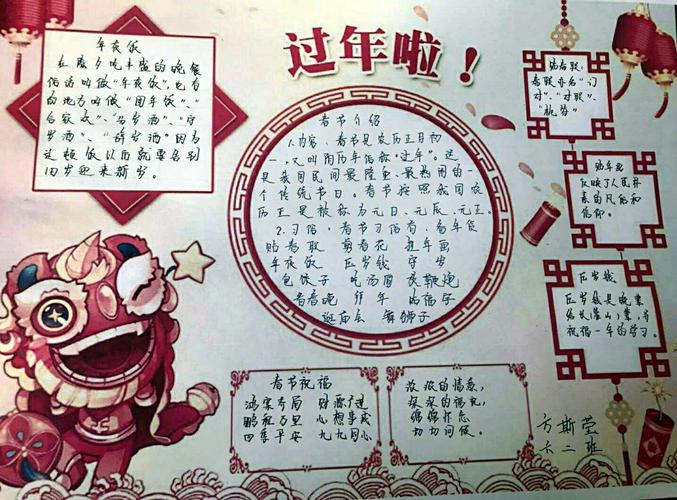 过年啦！
年夜饭
在除夕吃丰盛的晚餐
俗话叫做"年夜饭",也有
的地方叫做"团年饭"、"
合家欢"、"分岁酒"、"守
岁酒"、"辞岁酒"因为
这顿饭以后就要告别
旧岁迎来新岁。
春节介绍
1.内容、春节是农历正月初
一,又叫阴历年俗称"过年"。这
是我国民间最隆重、最热闹的一
个传统节日。春节按照我国农
历正是被称为元日、元辰、元正。
2.习俗、春节习俗有、备年货
贴春联 剪春花 挂年画
年夜饭 压岁钱 守岁
包饺子 吃汤圆 放鞭炮
看春晚 拜年 贴福字
逛庙会 舞狮子
贴春联,
春联亦名"门
对"、"对联"、
"桃符"
贴年画
反映了人民朴
素的风俗和
信仰。
压岁钱是晚辈
祝福一年的学习.
春节祝福
鸿案齐局 财源广进
鹏程万里 心想事成
四季平安 九九同心
浓浓的情意,
深深的祝礼,
绵绵怀念
切切问候。
方斯莹
六二班